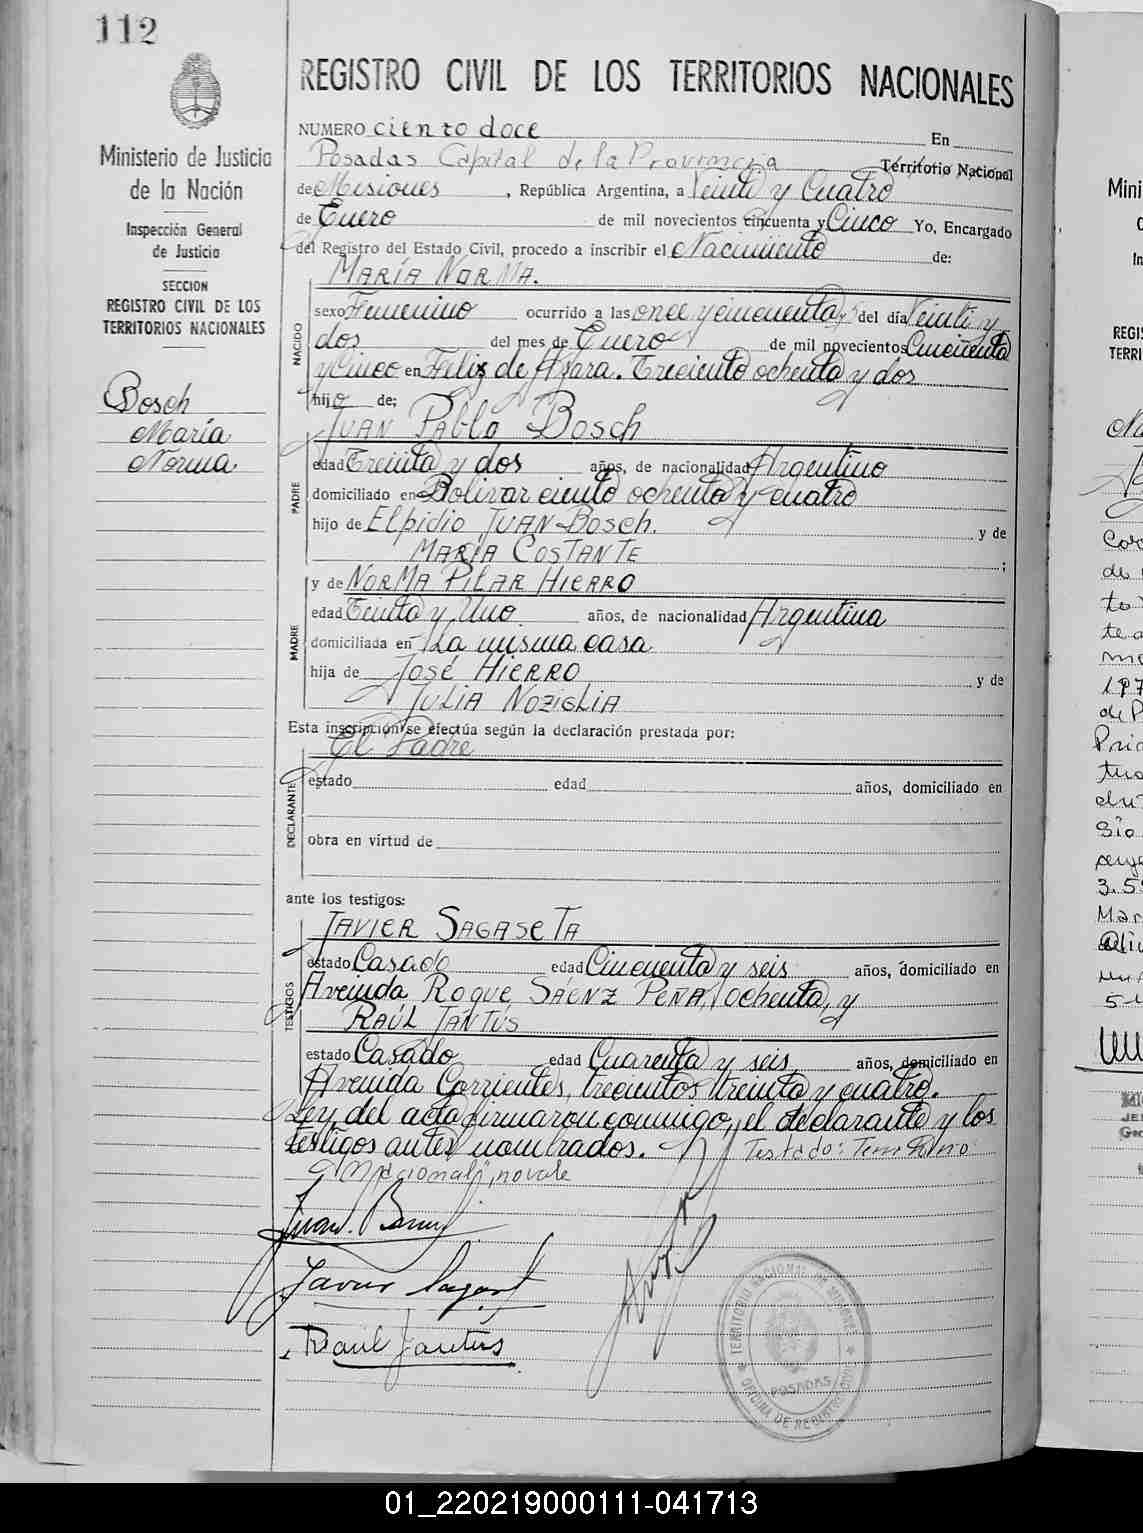 112
Ministerio de Justicia
de la Nación
Inspección General
de Justicia
SECCION
REGISTRO CIVIL DE LOS
TERRITORIOS NACIONALES
Bosch
María
Norma
REGISTRO CIVIL DE LOS TERRITORIOS NACIONALES
NUMERO ciento doce En
Posadas Capital de la Provincia Territorio Nacional
de Misiones, República Argentina, a Veinti y Cuatro
de Enero de mil novecientos cincuenta y Cinco Yo, Encargado
del Registro del Estado Civil, procedo a inscribir el Nacimiento de:
MARÍA NORMA.
NACIDO
sexo Femenino ocurrido a las once y cincuenta y 5 del día Veinti y
dos del mes de Enero de mil novecientos Cincuenta
y Cinco en Felix de Azara. Treciento ochenta y dos
hijo de;
JUAN PABLO BOSCH
PADRE
edad Treinta y dos años, de nacionalidad Argentino
domiciliado en Bolivar ciento ochenta y cuatro
hijo de Elpidio JUAN BOSCH. y de
MARÍA COSTANTE ;
y de NORMA PILAR HIERRO
MADRE
edad Teinta y Uno. años, de nacionalidad Argentina
domiciliada en La misma casa
hija de JOSÉ HIERRO y de
JULIA NOZIGLIA
Esta inscripción se efectúa según la declaración prestada por:
El Padre
DECLARANTE
estado edad años, domiciliado en
obra en virtud de
ante los testigos:
JAVIER SAGASETA
TESTIGOS
estado Casado edad Cincuenta y seis años, domiciliado en
Avenida ROQUE SÁENZ PEÑA, ochenta, y
RAÚL JANTUS
estado Casado edad Cuarenta y seis años, domiciliado en
Avenida Corrientes, trecientos treinta y cuatro.
Ley del acta firmaron conmigo, el declarante y los
testigos antes nombrados. Testado: Territorio
Nacional", no vale
Raúl Jantus
TERRITORIO NACIONAL DE MISIONES
POSADAS
01_220219000111-041713